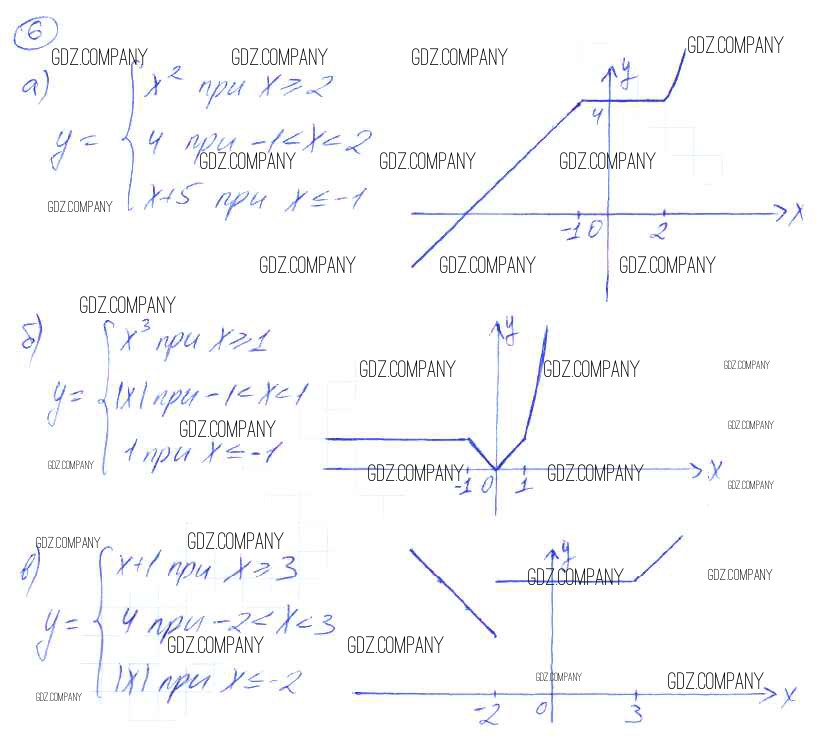 6
GDZ.COMPANY GDZ.COMPANY GDZ.COMPANY GDZ.COMPANY
а) x² при x ≥ 2
y = 4 при -1 < x < 2
GDZ.COMPANY GDZ.COMPANY GDZ.COMPANY
x+5 при x ≤ -1
GDZ.COMPANY
y
4
-1 0 2 x
GDZ.COMPANY GDZ.COMPANY GDZ.COMPANY
GDZ.COMPANY
б) x³ при x ≥ 1
y = |x| при -1 < x < 1
1 при x ≤ -1
y
GDZ.COMPANY GDZ.COMPANY GDZ.COMPANY
GDZ.COMPANY GDZ.COMPANY
GDZ.COMPANY GDZ.COMPANY GDZ.COMPANY GDZ.COMPANY
-1 0 1 x
GDZ.COMPANY GDZ.COMPANY
в) x+1 при x ≥ 3
y = 4 при -2 < x < 3
|x| при x ≤ -2
y
GDZ.COMPANY GDZ.COMPANY
GDZ.COMPANY GDZ.COMPANY
GDZ.COMPANY GDZ.COMPANY
GDZ.COMPANY
-2 0 3 x